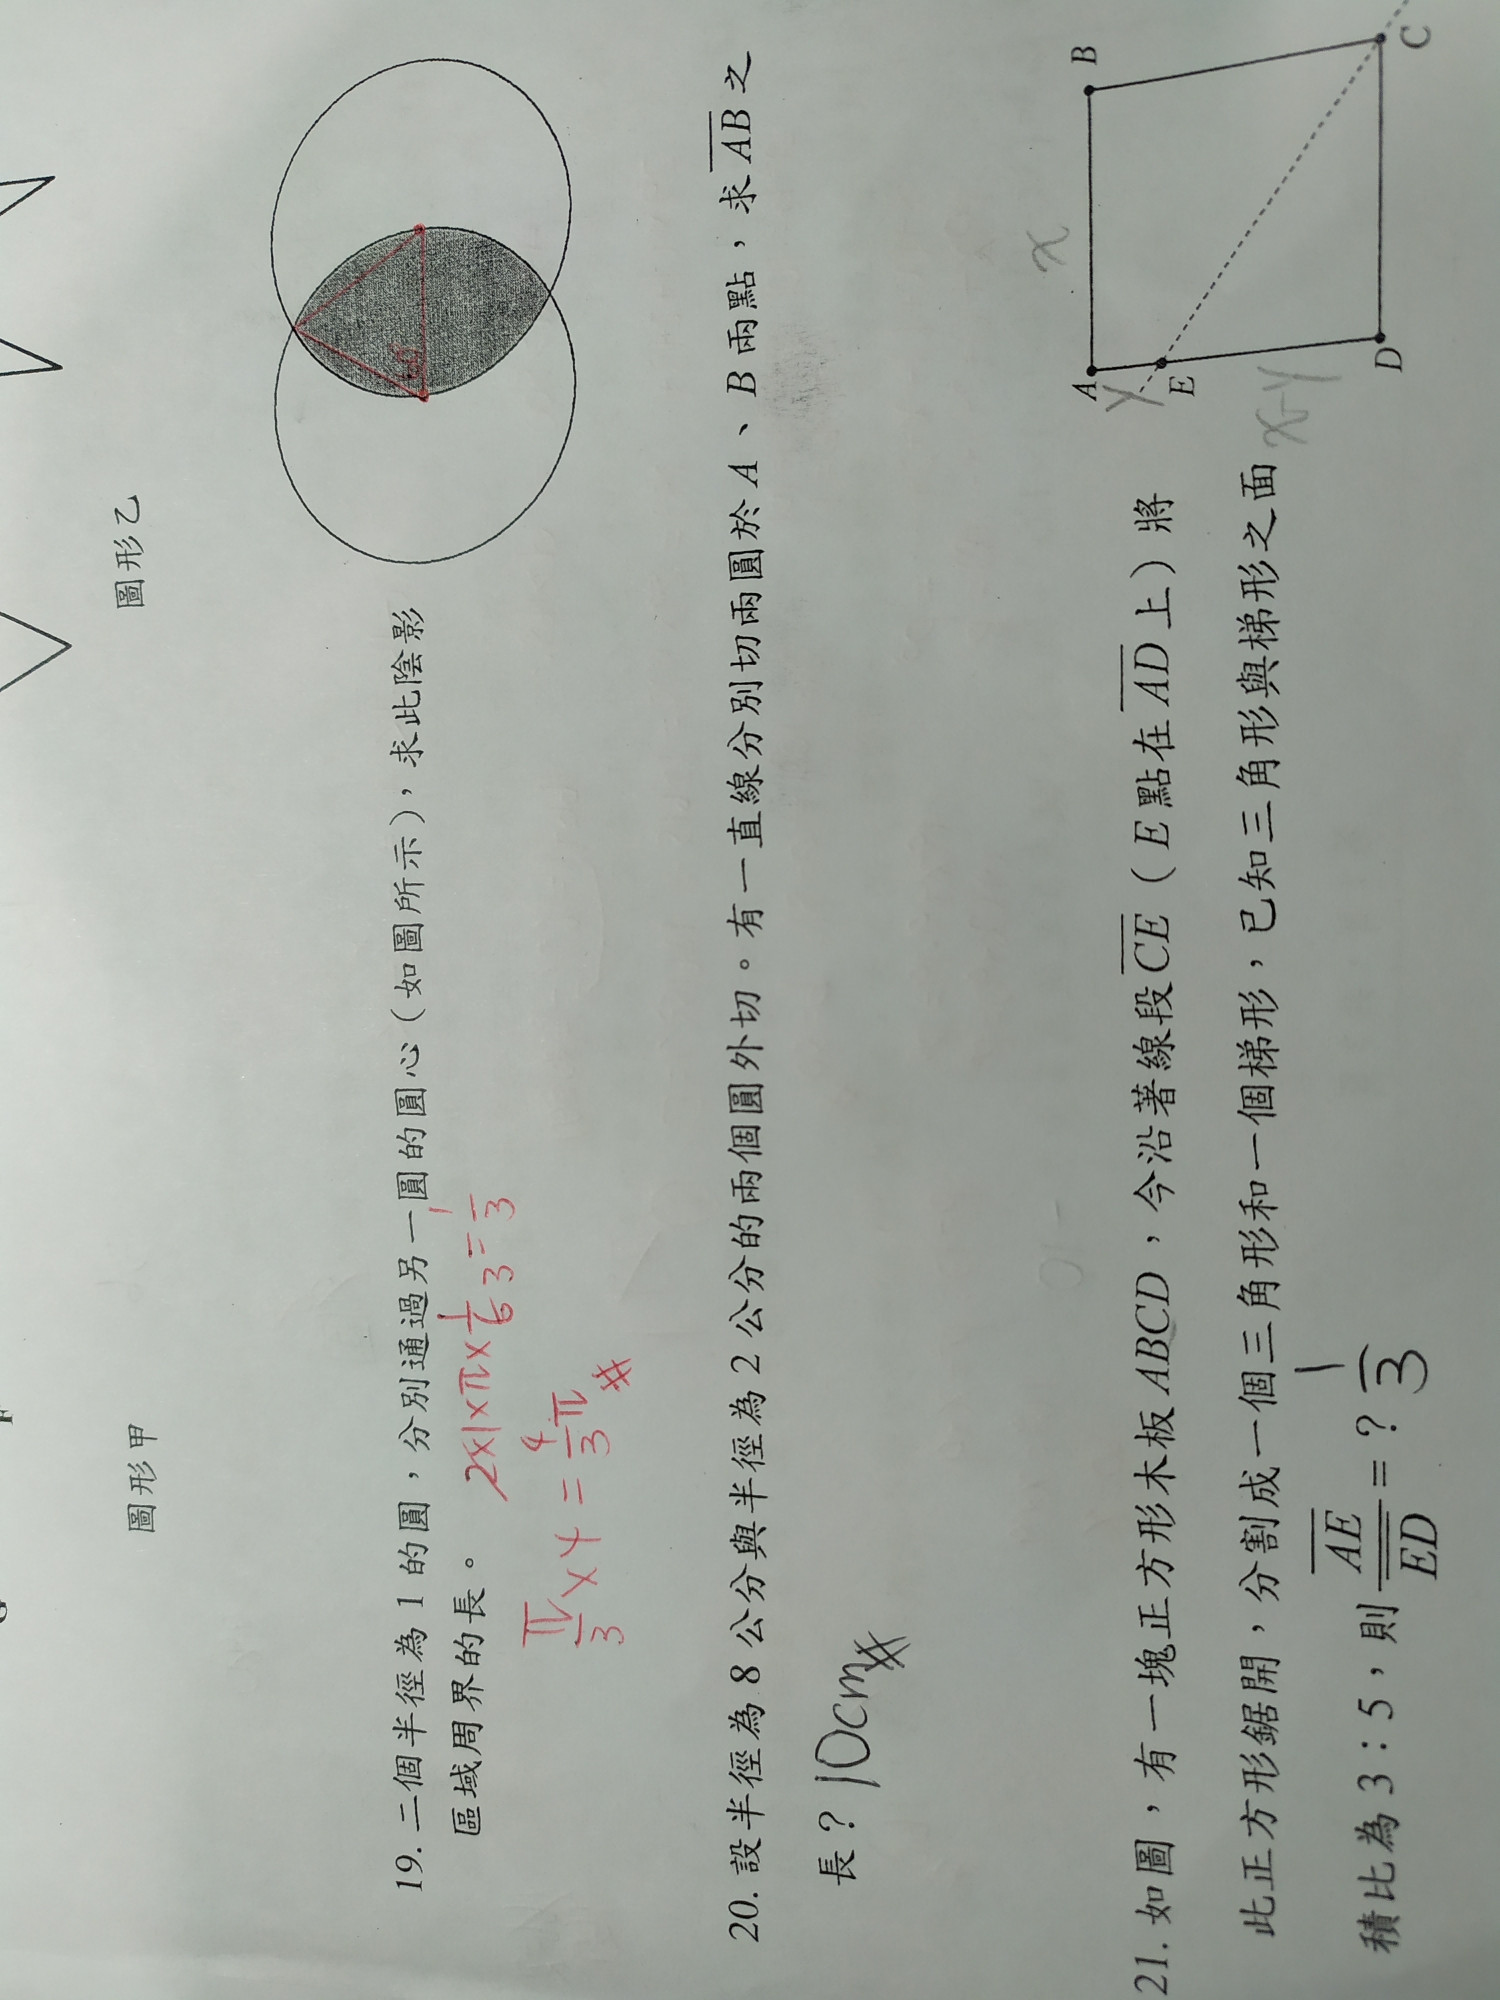 圖形甲
圖形乙
19. 二個半徑為 1 的圓，分別通過另一圓的圓心（如圖所示），求此陰影
區域周界的長。
60
2×1×π×1/6
π/3 × 4 = 4/3 π #
20. 設半徑為 8 公分與半徑為 2 公分的兩個圓外切。有一直線分別切兩圓於 A、B 兩點，求 AB 之
長？ 10cm #
21. 如圖，有一塊正方形木板 ABCD，今沿著線段 CE（E 點在 AD 上）將
此正方形鋸開，分割成一個三角形和一個梯形，已知三角形與梯形之面
積比為 3：5，則 AE/ED = ? 1/3
A
B
C
D
E
x
y
x-y